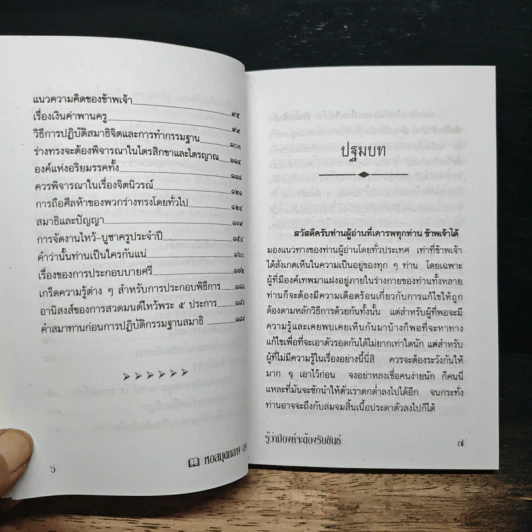 แนวความคิดของข้าพเจ้า ๙๕
เรื่องเงินค่าพานครู ๙๙
วิธีการปฏิบัติสมาธิจิตและการทำกรรมฐาน ๑๐๓
ร่างทรงจะต้องพิจารณาในไตรสิกขาและไตรญาณ
องค์แห่งอริยมรรคทั้ง
ควรพิจารณาในเรื่องจิตนิวรณ์ ๑๒๑
การถือศีลห้าของพวกร่างทรงโดยทั่วไป
สมาธิและปัญญา
การจัดงานไหว้-บูชาครูประจำปี
คำว่านั้นท่านเป็นใครกันแน่ ๑๖๐
เรื่องของการประกอบบายศรี
เกร็ดความรู้ต่าง ๆ สำหรับการประกอบพิธีการ
อานิสงส์ของการสวดมนต์ไหว้พระ ๕ ประการ
คำสมาทานก่อนการปฏิบัติกรรมฐานสมาธิ
๖
หอสมุดกลาง
ปฐมบท
สวัสดีครับท่านผู้อ่านที่เคารพทุกท่าน ข้าพเจ้าได้
มองแนวทางของท่านผู้อ่านโดยทั่วประเทศ เท่าที่ข้าพเจ้า
ได้สังเกตเห็นในความเป็นอยู่ของทุก ๆ ท่าน โดยเฉพาะ
ผู้ที่มีองค์เทพมาแฝงอยู่ภายในร่างกายของท่านทั้งหลาย
ท่านก็จะต้องมีความเดือดร้อนเกี่ยวกับการแก้ไขให้ถูก
ต้องตามหลักวิธีการด้วยกันทั้งนั้น แต่สำหรับผู้ที่พอจะมี
ความรู้และเคยพบเคยเห็นกันมาบ้างก็พอที่จะหาทาง
แก้ไขเพื่อที่จะเอาตัวรอดกันได้ไม่ยากเท่าใดนัก แต่สำหรับ
ผู้ที่ไม่มีความรู้ในเรื่องอย่างนี้นี่สิ ควรจะต้องระวังกันให้
มาก ๆ เอาไว้ก่อน จงอย่าหลงเชื่อคนง่ายนัก ก็คนนี่
แหละที่มันจะชักนำให้ตัวเราตกต่ำลงไปได้อีก จนกระทั่ง
ท่านอาจจะถึงกับล่มจมสิ้นเนื้อประดาตัวลงไปก็ได้
รู้ว่ามีองค์จะต้องรับขันธ์ ๗